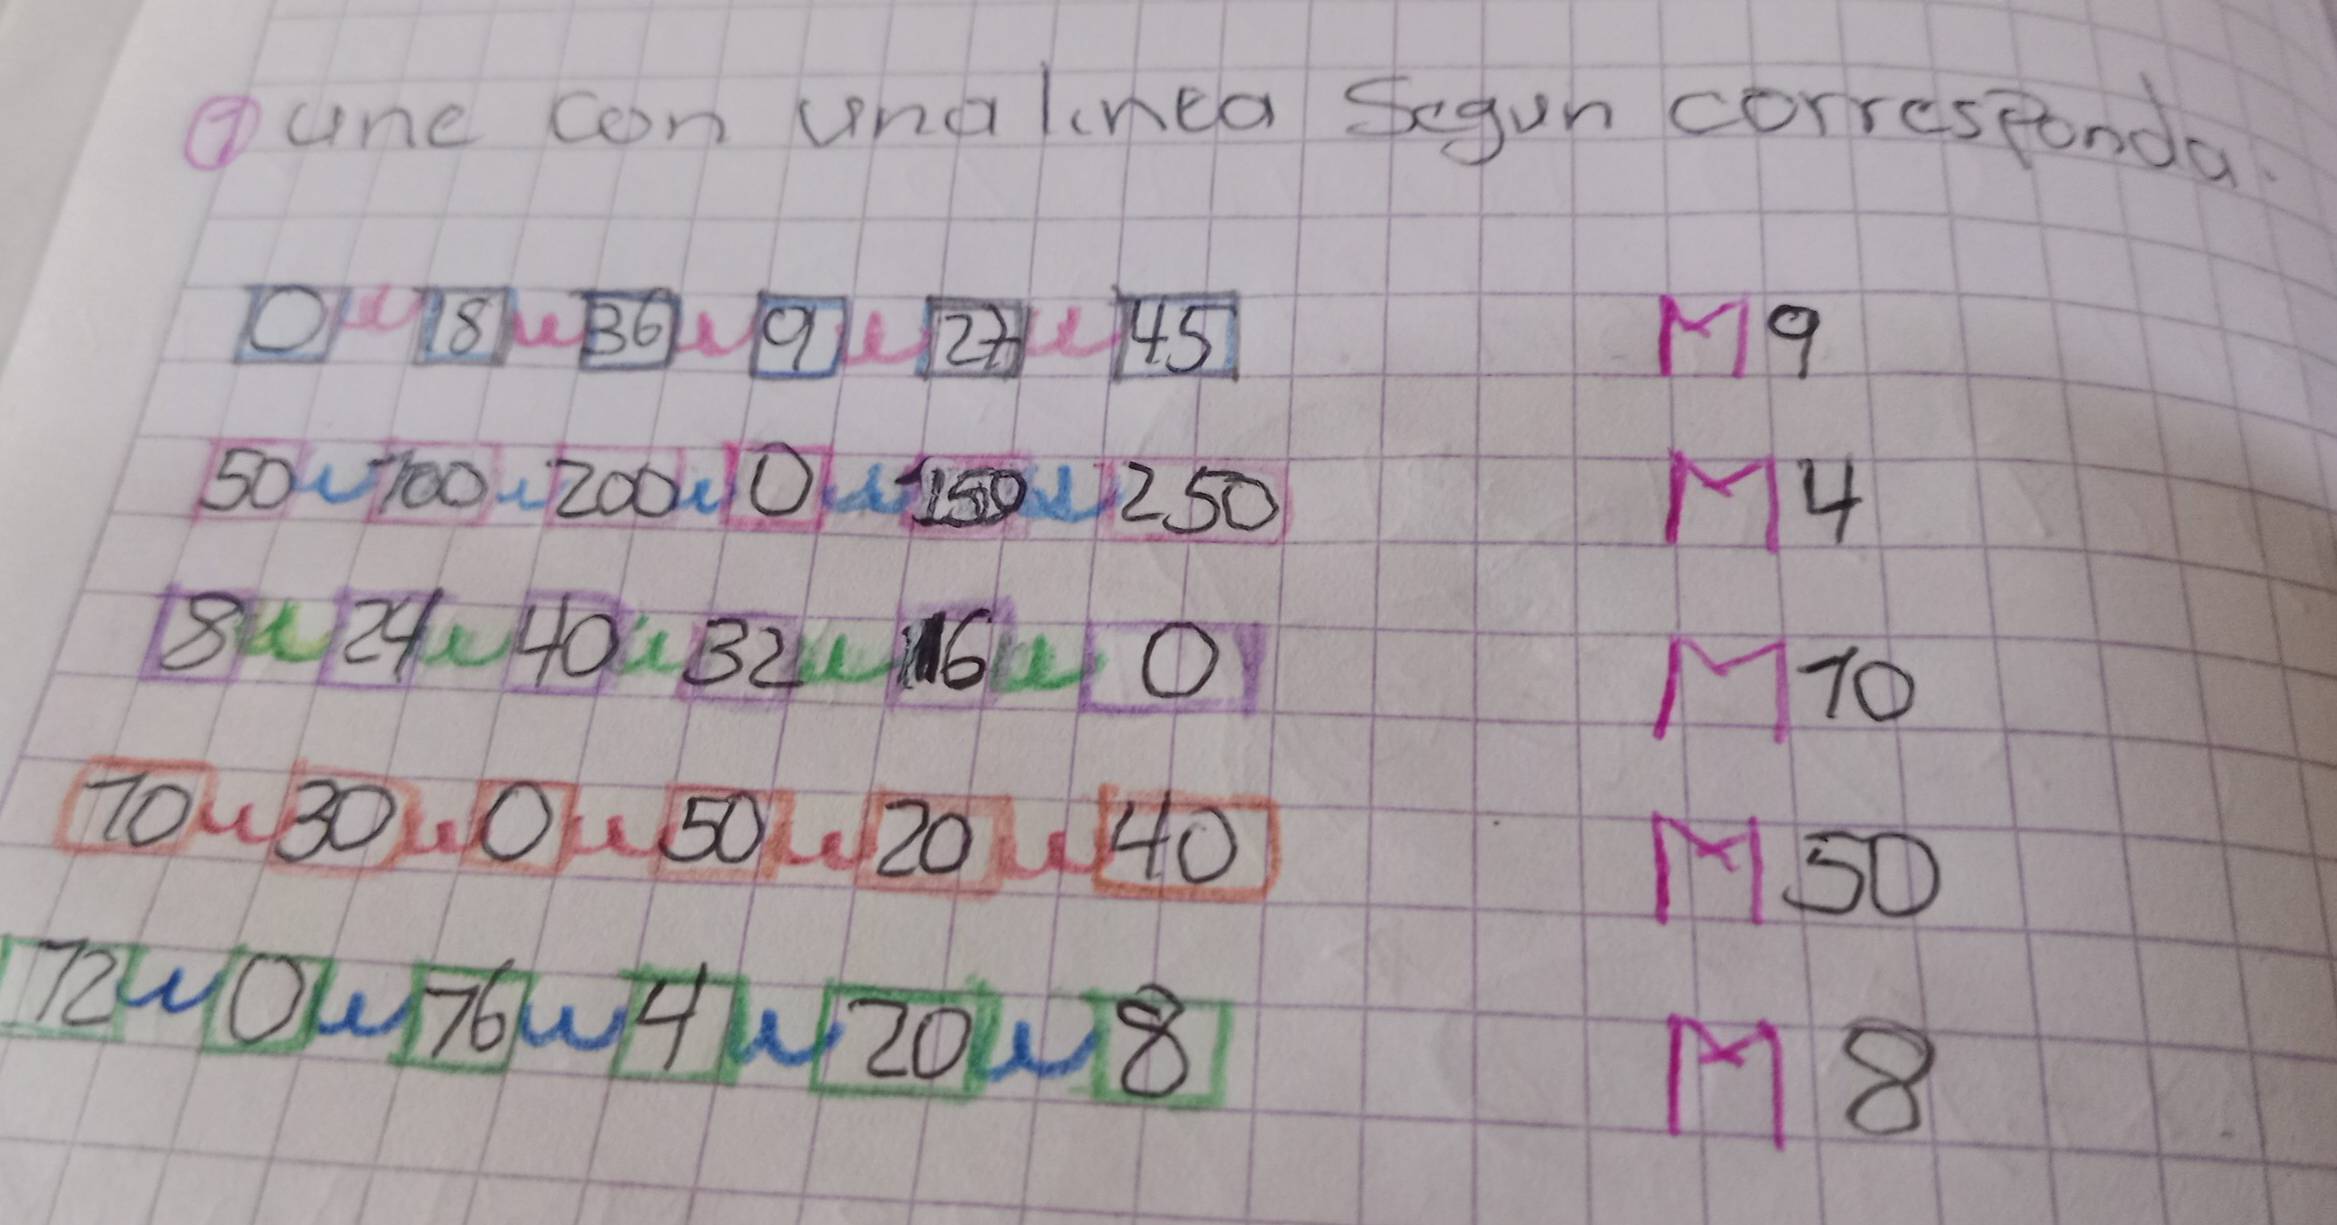 ① une con una linea Segun corresponda.
0 18 36 9 27 45 M9
50 100 200 0 150 250 M4
8 24 40 32 16 0 M10
10 30 0 50 20 40 M50
12 0 16 4 20 8 M8